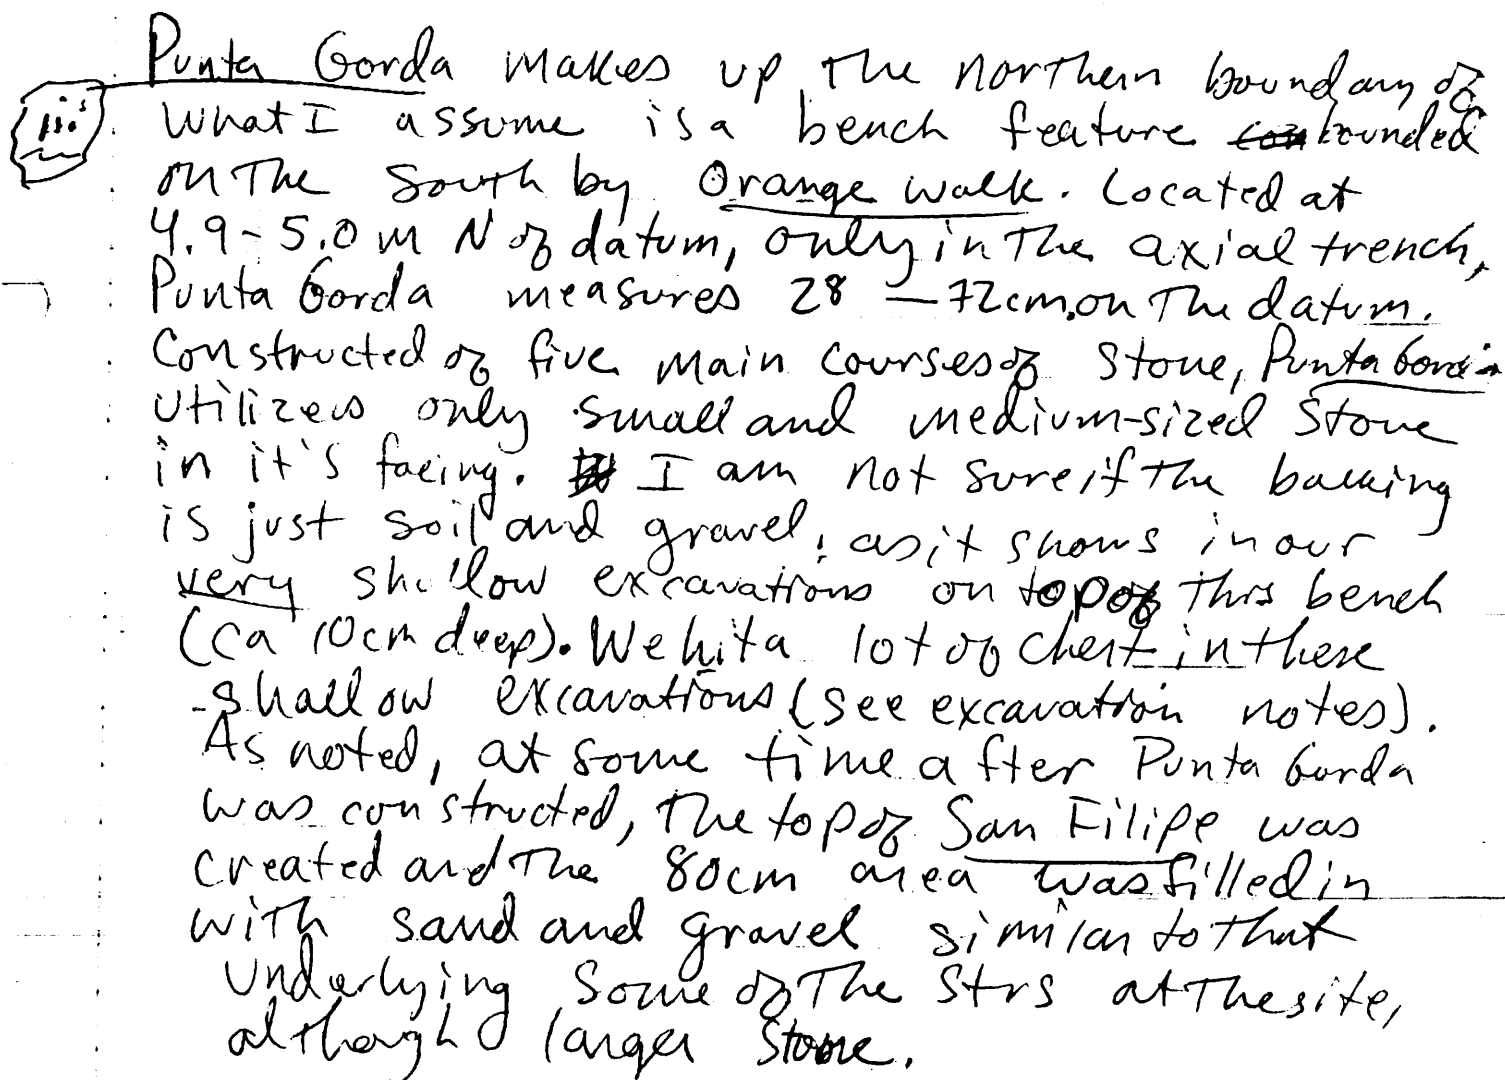 Punta Gorda makes up the northern boundary of
what I assume is a bench feature bounded
on the south by Orange Walk. Located at
4.9-5.0 m N of datum, only in the axial trench,
Punta Gorda measures 28 — 72cm. on the datum.
Constructed of five main courses of stone, Punta Gorda
utilizes only small and medium-sized stone
in it's facing. I am not sure if the backing
is just soil and gravel, as it shows in our
very shallow excavations on top of this bench
(ca 10cm deep). We hit a lot of chert in these
shallow excavations (see excavation notes).
As noted, at some time after Punta Gorda
was constructed, the top of San Filipe was
created and the 80cm area was filled in
with sand and gravel similar to that
underlying some of the strs at the site,
although larger stone.